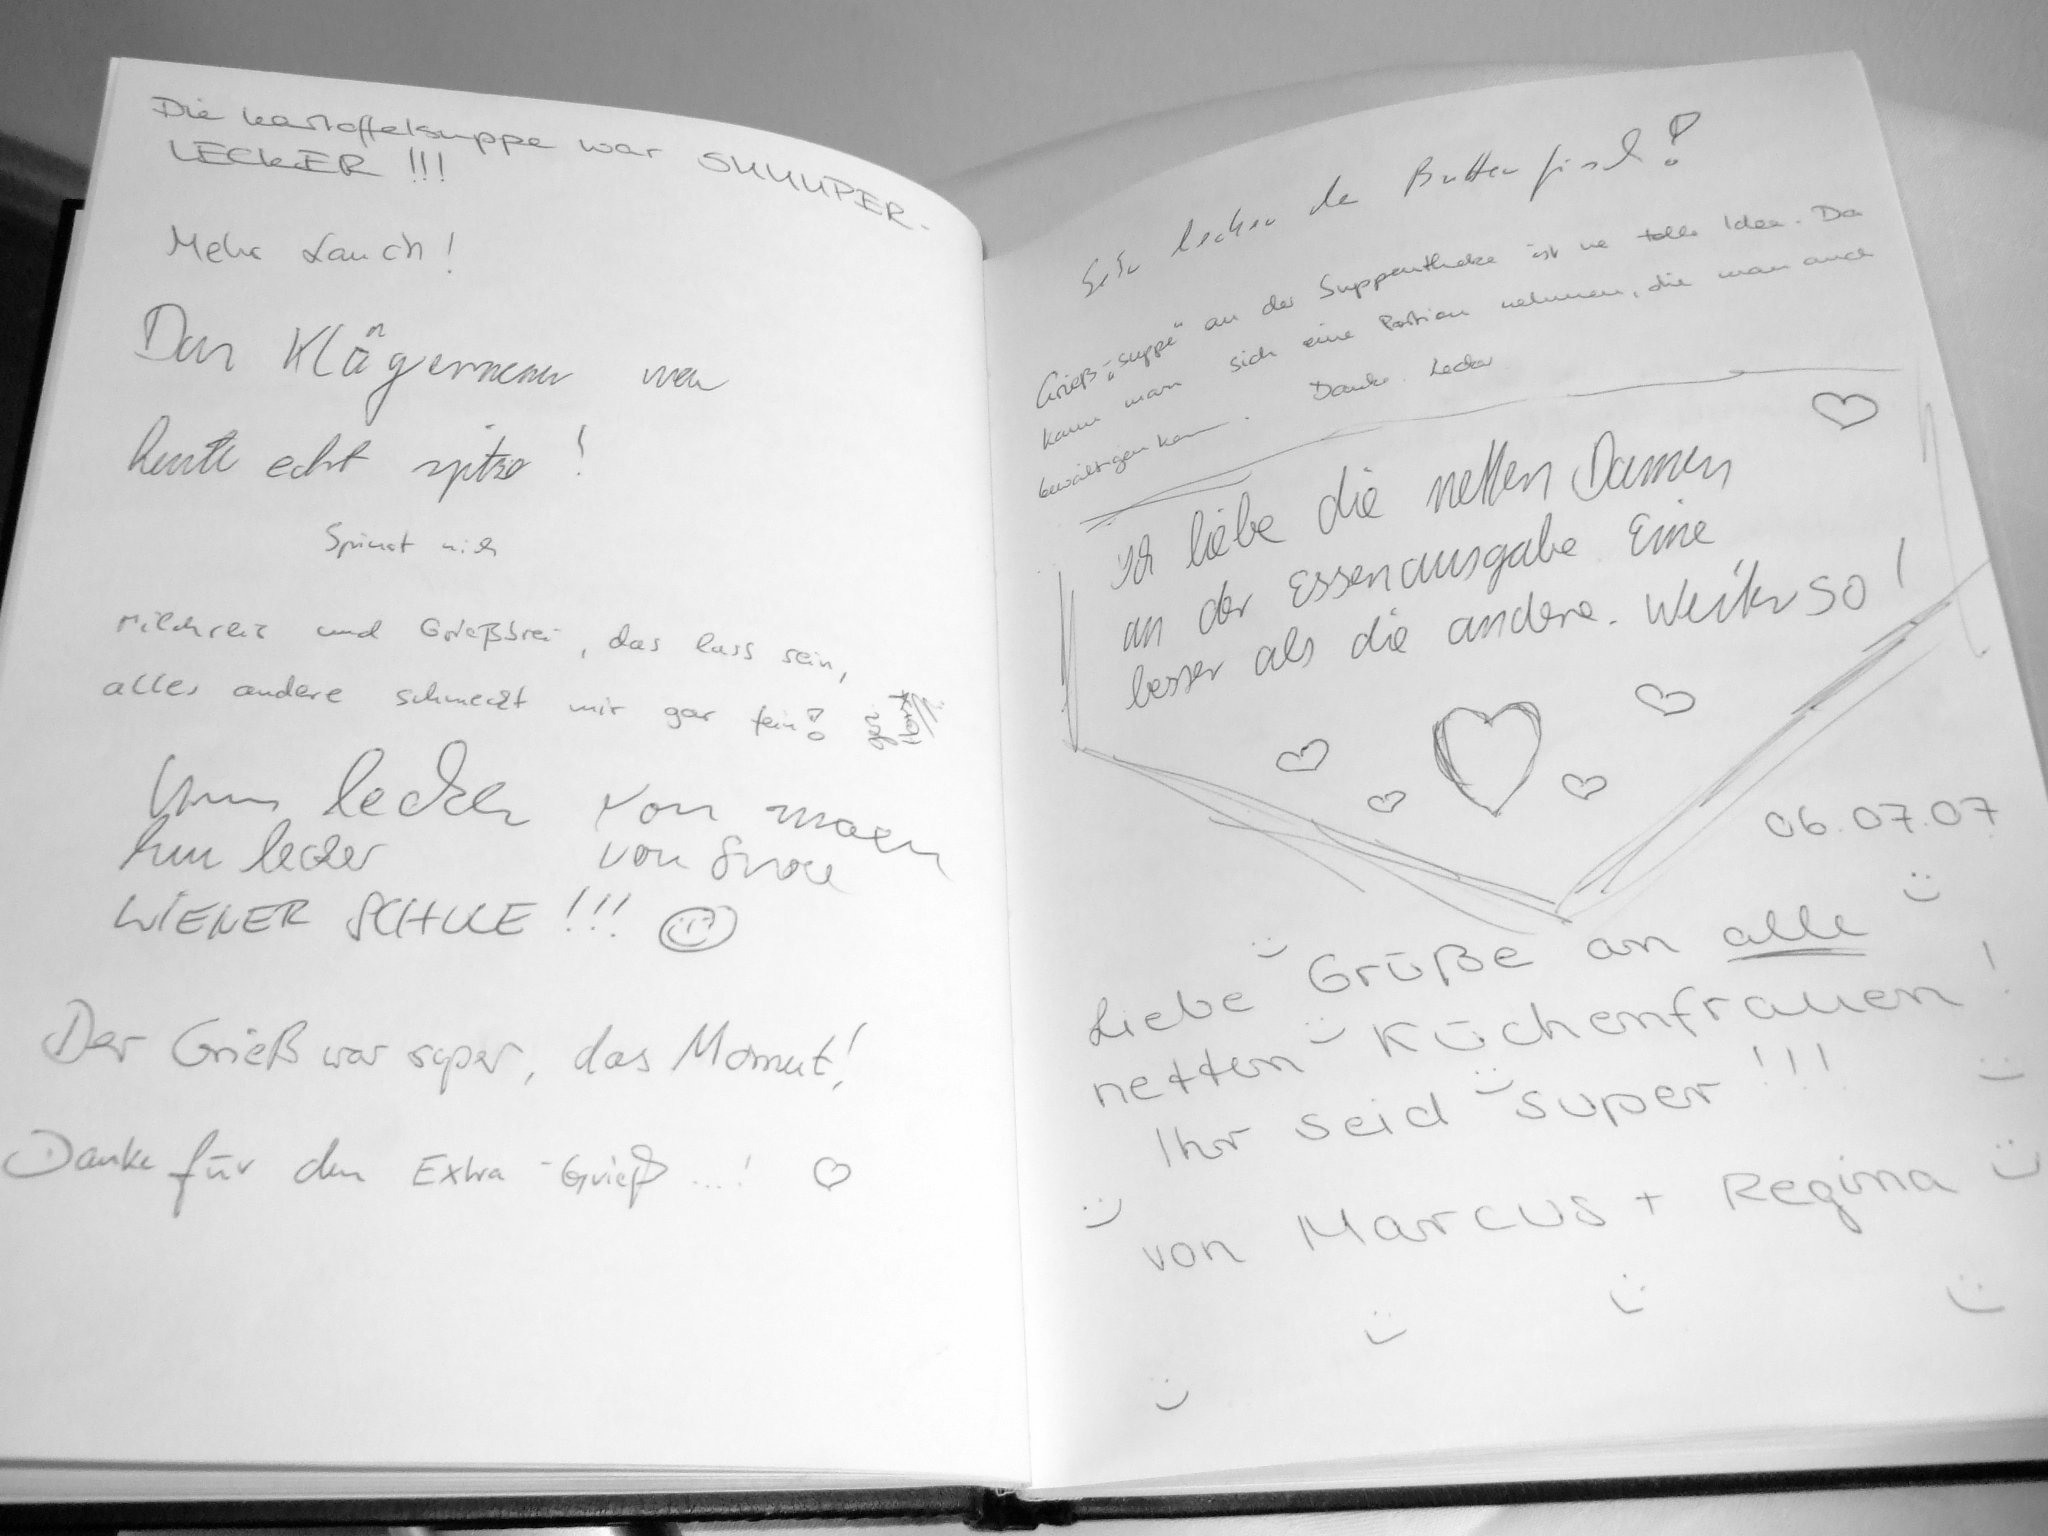 Die Kartoffelsuppe war SUUUPER-
LECKER !!!
Mehr Lauch!
Das
heute echt spitze!
Spinat mich
Milchreis und Grießbrei, das lass sein,
alles andere schmeckt mir gar fein!
lecker von
hm lecker von
WIENER SCHULE!!!
Der Grieß war super, das Momut!
Danke für den Extra-Grieß ...!
Sehr lecker der Butterfisch!
Grieß-„suppe“ an der Suppentheke ist ne tolle Idee. Da
kann man sich eine Portion nehmen, die man auch
bewältigen kann. Danke. Lecker
Ich liebe die netten Damen
an der Essenausgabe. Eine
besser als die andere. Weiter so!
06.07.07
Liebe Grüße an alle
netten Küchenfrauen!
Ihr seid super!!!
von Marcus + Regina